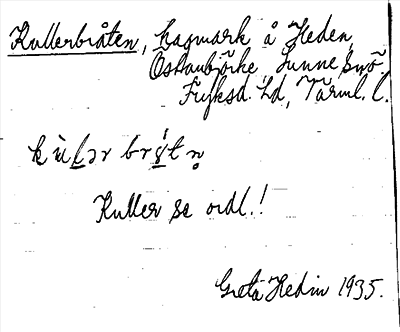 Kullerbråten, hagmark å Heden,
Östanbjörke, Sunne snö
Fryksd. hd, Värml. l.
kùḷər brǻtn̥
Kuller se ordl.!
Greta Hedin 1935.